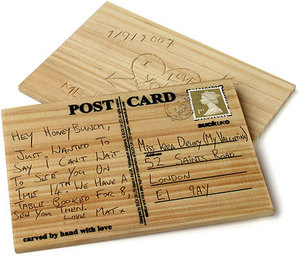 1/9/2007
I LOVE
YOU
ME
POST CARD
SUCK UK
HEY HONEYBUNCH,
JUST WANTED TO
SAY I CAN'T WAIT
TO SEE YOU ON
THE 14TH. WE HAVE A
TABLE BOOKED FOR 8,
SEE YOU THEN.
LOVE MAT x
MISS KIRA DRURY (MY VALENTINE)
52 SAINTS ROAD
LONDON
E1 9AY
carved by hand with love